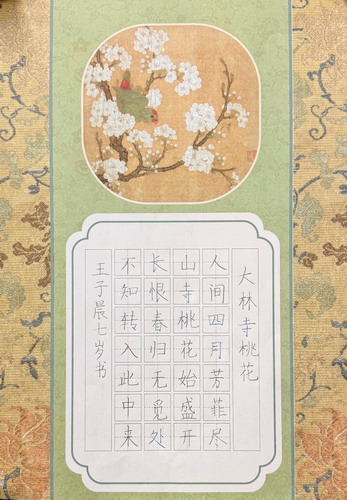 大林寺桃花
人间四月芳菲尽
山寺桃花始盛开
长恨春归无觅处
不知转入此中来
王子晨七岁书